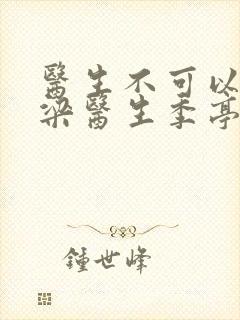 醫生不可以
梁醫生季亭
鍾世峰